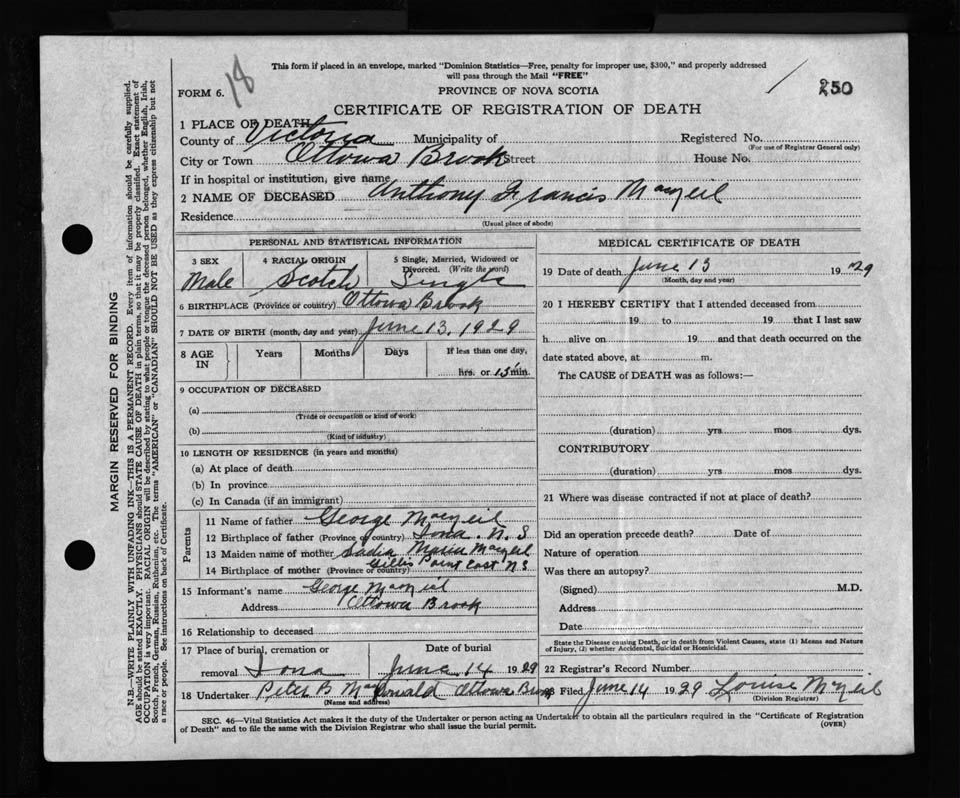 This form if placed in an envelope, marked "Dominion Statistics—Free, penalty for improper use, $300," and properly addressed
will pass through the Mail "FREE"
18
250
FORM 6.
PROVINCE OF NOVA SCOTIA
CERTIFICATE OF REGISTRATION OF DEATH
1 PLACE OF DEATH
County of Victoria Municipality of Registered No.
(For use of Registrar General only)
City or Town Ottowa Brook Street House No.
If in hospital or institution, give name
2 NAME OF DECEASED Anthony Francis MacNeil
Residence
(Usual place of abode)
PERSONAL AND STATISTICAL INFORMATION
3 SEX 4 RACIAL ORIGIN 5 Single, Married, Widowed or
Divorced. (Write the word)
Male Scotch Single
6 BIRTHPLACE (Province or country) Ottowa Brook
7 DATE OF BIRTH (month, day and year) June 13, 1929
8 AGE IN Years Months Days If less than one day,
hrs. or 15 min.
9 OCCUPATION OF DECEASED
(a)
(Trade or occupation or kind of work)
(b)
(Kind of industry)
10 LENGTH OF RESIDENCE (in years and months)
(a) At place of death
(b) In province
(c) In Canada (if an immigrant)
Parents
11 Name of father George MacNeil
12 Birthplace of father (Province or country) Iona. N. S
13 Maiden name of mother Sadie Maria MacNeil
14 Birthplace of mother (Province or country) Gillis Point East N S
15 Informant's name George MacNeil
Address Ottowa Brook
16 Relationship to deceased
17 Place of burial, cremation or Date of burial
removal Iona June 14 1929
18 Undertaker Peter B MacDonald Ottowa Brook
(Name and address)
MEDICAL CERTIFICATE OF DEATH
19 Date of death June 13 1929
(Month, day and year)
20 I HEREBY CERTIFY that I attended deceased from
19 to 19 that I last saw
h alive on 19 and that death occurred on the
date stated above, at m.
The CAUSE of DEATH was as follows:—
(duration) yrs. mos. dys.
CONTRIBUTORY
(duration) yrs. mos. dys.
21 Where was disease contracted if not at place of death?
Did an operation precede death? Date of
Nature of operation
Was there an autopsy?
(Signed) M.D.
Address
Date
State the Disease causing Death, or in death from Violent Causes, state (1) Means and Nature
of Injury, (2) whether Accidental, Suicidal or Homicidal.
22 Registrar's Record Number
23 Filed June 14 1929 Louise McNeil
(Division Registrar)
SEC. 46—Vital Statistics Act makes it the duty of the Undertaker or person acting as Undertaker to obtain all the particulars required in the "Certificate of Registration
of Death" and to file the same with the Division Registrar who shall issue the burial permit.
(OVER)
MARGIN RESERVED FOR BINDING
N.B.—WRITE PLAINLY WITH UNFADING INK—THIS IS A PERMANENT RECORD. Every item of information should be carefully supplied.
AGE should be stated EXACTLY. PHYSICIANS should STATE CAUSE OF DEATH in plain terms, so that it may be properly classified. Exact statement of
OCCUPATION is very important. RACIAL ORIGIN will be described by stating to what people or tongue the deceased person belonged, whether English, Irish,
Scotch, French, German, Russian, Ruthenian, etc. The terms "AMERICAN" or "CANADIAN" SHOULD NOT BE USED as they express citizenship but not
a race or people. See instructions on back of Certificate.